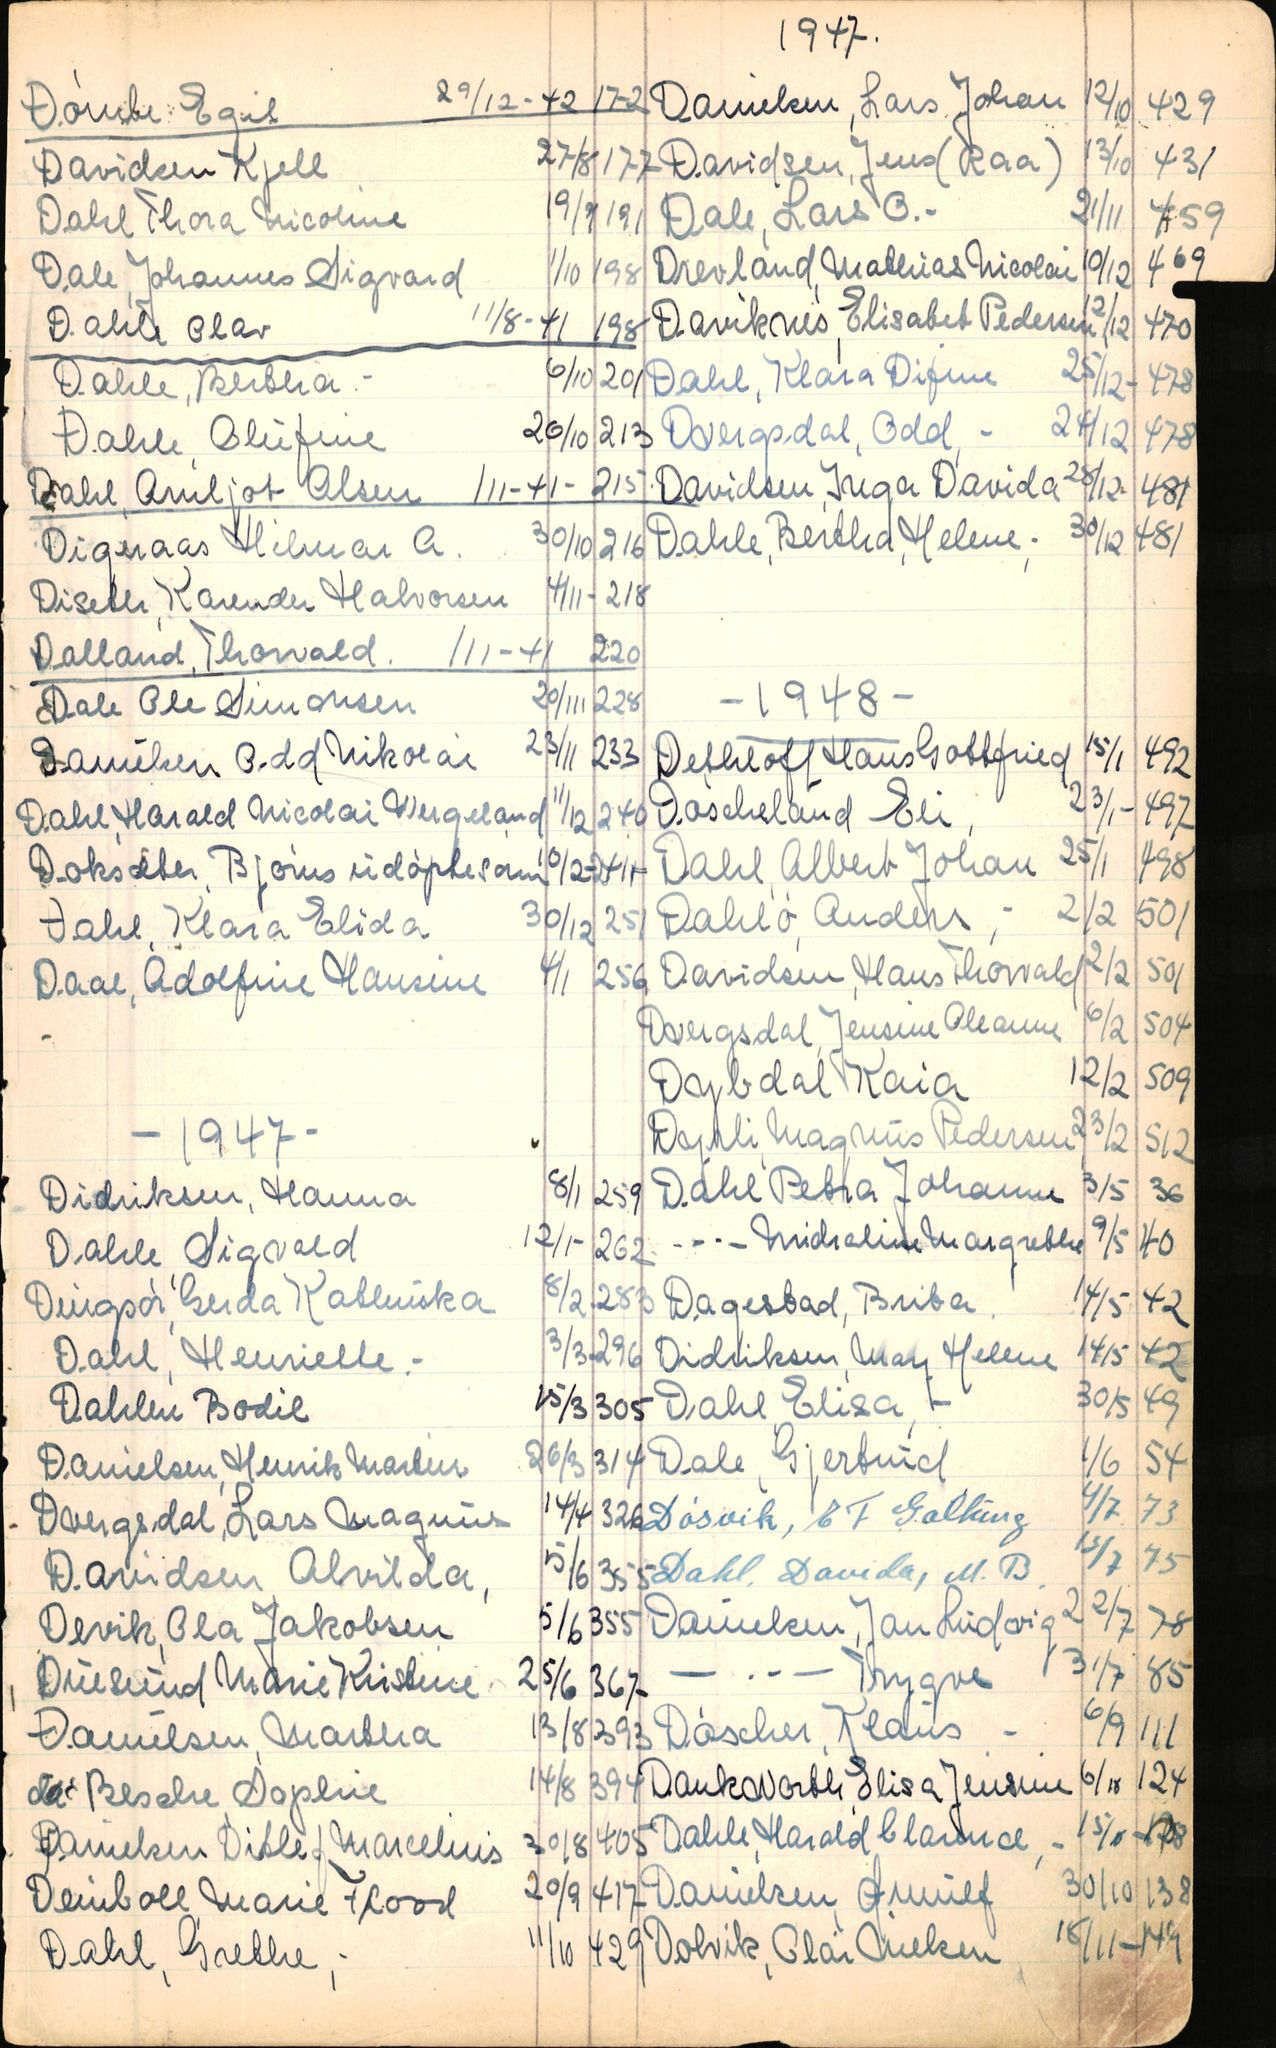 1947.
Dømbe Egil 29/12-42 172
Davidsen Kjell 27/8 177
Dahl Thora Nicoline 19/9 191
Dale, Johannes Sigvard 1/10 198
Dahle Olav 11/8-41 198
Dahle, Bertha - 6/10 201
Dahle, Olufine 26/10 213
Dahl, Arnljot Olsen 1/11-41- 215
Digeraas Hilmar A. 30/10 216
Diseth, Karender Halvorsen 4/11- 218
Dalland, Thorvald. 1/11-41 220
Dale Ole Simonsen 20/11 228
Danielsen Odd Nikolai 23/11 233
Dahl, Harald Nicolai Wergeland 11/12 240
Doksæter, Bjørns udøpte sønn
Dahl, Klara Elida 30/12 251
Daae, Adolfine Hansine 4/1 256
-1947-
Didriksen, Hanna 8/1 259
Dahle Sigvald 12/1- 262
Dingsør, Gerda Kathinka 8/2- 283
Dahl, Henriette.- 3/3- 296
Dahlen Bodil 15/3 305
Danielsen, Henrik Martin 26/3 314
Dvergsdal, Lars Magnus 14/4 326
Davidsen Alvilda, 5/6 355
Devik, Ola Jakobsen 5/6 355
Duesund Marie Kristine 25/6 367
Danielsen, Martha 13/8 393
de Besche, Sophie 14/8 394
Danielsen Ditlef Marcelius 30/8 405
Deinboll Marie Flood 20/9 417
Dahl, Grethe,- 11/10 429
Danielsen, Lars Johan 12/10 429
Davidsen, Jens (Raa) 13/10 431
Dale, Lars O.- 21/11 459
Drevland, Mathias Nicolai 10/12 469
Daviknes, Elisabet Pedersen 12/12 470
Dahl, Klara Difine 25/12- 478
Dvergsdal, Odd, - 24/12 478
Davidsen, Inga Davida 28/12- 481
Dahle, Bertha, Helene,- 30/12 481
-1948-
Dethloff Hans Gottfried 15/1 492
Døscheland Eli, 23/1- 497
Dahl, Albert Johan 25/1 498
Dahlø, Anders,- 2/2 501
Davidsen, Hans Thorvald 2/2 501
Dvergsdal, Jensine Oleanne 6/2 504
Dybdal Kaia 12/2 509
Dyrli, Magnus Pedersen 23/2 512
Dahl Petra Johanne 3/5 36
---- Michaeline Margrethe 9/5 40
Dagestad, Brita. 14/5 42
Didriksen, May Helene 14/5 42
Dahl, Elisa,- 30/5 49
Dale, Gjertrud 1/6 54
Døsvik, E F Galtung 4/7 73
Dahl, Davida, M. B. 15/7 75
Danielsen, Jan Ludvig 22/7 78
— .. — Trygve 31/7 85
Døscher, Klaus - 6/9 111
Dankwerth, Elisa Jensine 6/10 124
Dahle, Harald Clarence,- 15/10 128
Danielsen, Arnulf 30/10 138
Dolvik, Olai Nielsen 18/11- 149